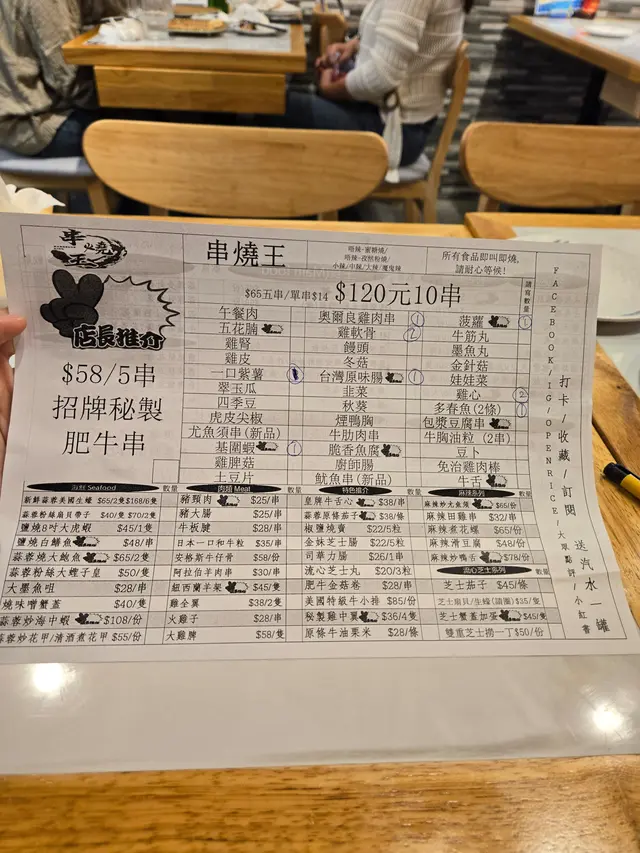 串燒王
串燒王
唔辣-蜜糖燒/
唔辣-孜然粉燒/
小辣/中辣/大辣/魔鬼辣
所有食品即叫即燒,
請耐心等候!
店長推介
$58/5串
招牌秘製
肥牛串
$65五串/單串$14 $120元10串
請寫數量
午餐肉 奧爾良雞肉串 ① 菠蘿 ①
五花腩 雞軟骨 ② 牛筋丸
雞腎 饅頭 墨魚丸
雞皮 冬菇 金針菇
一口紫薯 台灣原味腸 ① 娃娃菜
翠玉瓜 韭菜 雞心 ②
四季豆 秋葵 多春魚(2條) ①
虎皮尖椒 煙鴨胸 包漿豆腐串
尤魚須串(新品) 牛肋肉串 牛胸油粒 (2串)
基圍蝦 ① 脆香魚腐 豆卜
雞脾菇 廚師腸 免治雞肉棒
土豆片 魷魚串(新品) 牛舌
海鮮 Seafood 數量
新鮮蒜蓉美國生蠔 $65/2隻$168/6隻
蒜蓉粉絲扇貝帶子 $40/隻 $70/2隻
鹽燒8吋大虎蝦 $45/1隻
鹽燒白鱔魚 $48/串
蒜蓉燒大鮑魚 $65/2隻
蒜蓉粉絲大蟶子皇 $50/隻
大墨魚咀 $28/串
燒味噌蟹蓋 $40/隻
蒜蓉炒海中蝦 $108/份
蒜蓉炒花甲/清酒煮花甲 $55/份
肉類 Meat 數量
豬頸肉 $25/串
豬大腸 $25/串
牛板腱 $28/串
日本一口和牛粒 $35/串
安格斯牛仔骨 $58/份
阿拉伯羊肉串 $30/串
紐西蘭羊架 $45/隻
雞全翼 $38/2隻
火雞子 $28/串
大雞脾 $58/隻
特色推介 數量
皇牌牛舌心 $38/串
蒜蓉原條茄子 $38/條
椒鹽燒賣 $22/5粒
金妹芝士腸 $22/5粒
司華力腸 $26/1串
流心芝士丸 $20/3粒
肥牛金菇卷 $28/串
美國特級牛小排 $85/份
秘製雞中翼 $36/4隻
原條牛油粟米 $28/條
麻辣系列 數量
麻辣炒大魚須 $65/份
麻辣田雞串 $32/串
麻辣煮花螺 $65/份
麻辣滑豆腐 $48/份
麻辣炒鴨舌 $78/份
流心芝士系列 數量
芝士茄子 $45/條
芝士扇貝/生蠔(請圈) $35/隻
芝士蟹蓋加蛋 $45/隻
雙重芝士撈一丁$50/份
FACEBOOK/IG/OPENRICE/大眾點評/小紅書
打卡/收藏/訂閱 送汽水一罐